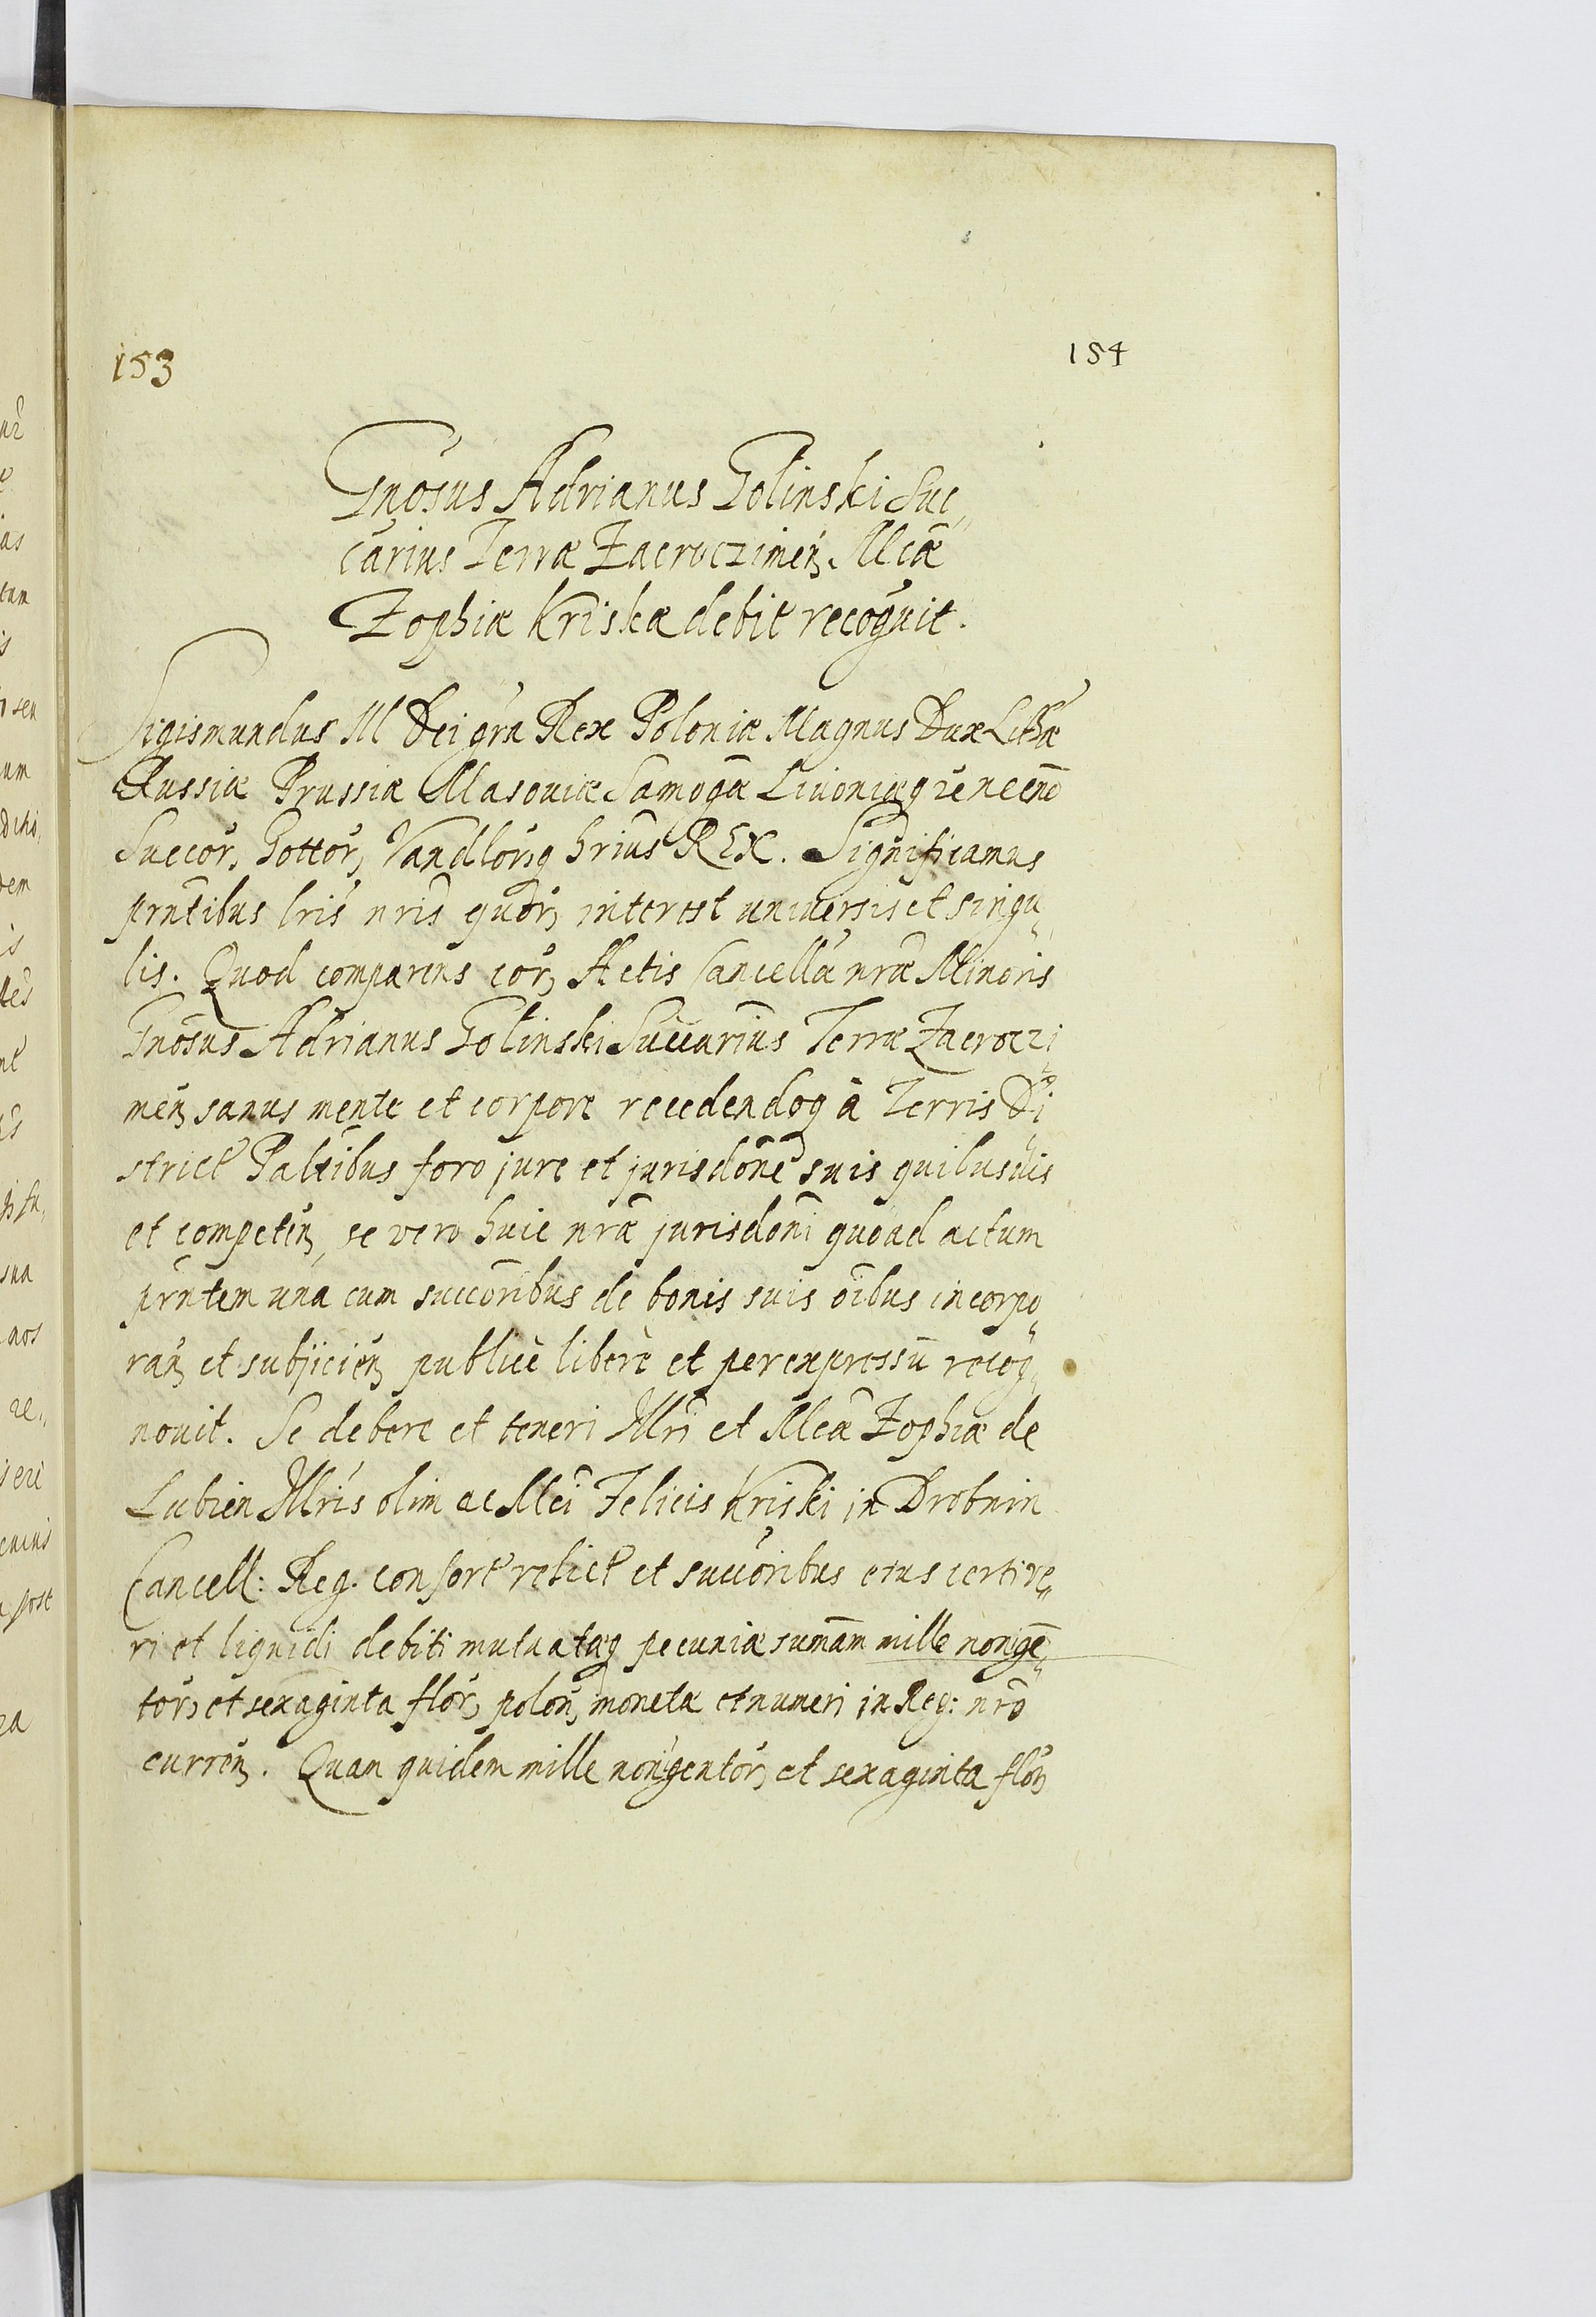 153
154
Gnosus Adrianus Golinski Suc„
carius Terræ Zacroczimen. Mcæ
Zophiæ Kriskæ debit recoguit.
Sigismundus III Dei gra Rex Poloniæ Magnus Dux Lithæ
Russiæ Prussiæ Masoviæ Samogæ Livoniæq
Suecor, Gottor, Vandlorq hrius REX. Significamus
prntibus lris nris quor, interest universis et singu„
lis. Quod comparens cor, Actis Cancellæ nræ Minoris
Gnosus Adrianus Golinski Succarius Terræ Zacroczi„
men, sanus mente et corpore recedendoq à Terris Di„
strict Paltibus foro jure et jurisdone suis quibusvis
et competen, se vero huic nræ jurisdoni quoad actum
prntem una cum succoribus de bonis suis oibus incorpo„
ran, et subjicien, publicè liberè et per expressu recog„
novit. Se debere et teneri Mri et Mcæ Zophiæ de
Lubien Mris olim ac Mci Felicis Kriski in Drobnin
Cancell: Reg. consort relict et succoribus eius certi ve„
ri et liquidi debiti mutuatæq pecuniæ sumam mille nonge„
tor, et sexaginta flor, polon, moneta et numeri in Reg: nro
curren,. Quan quidem mille nongentor, et sexaginta flor,